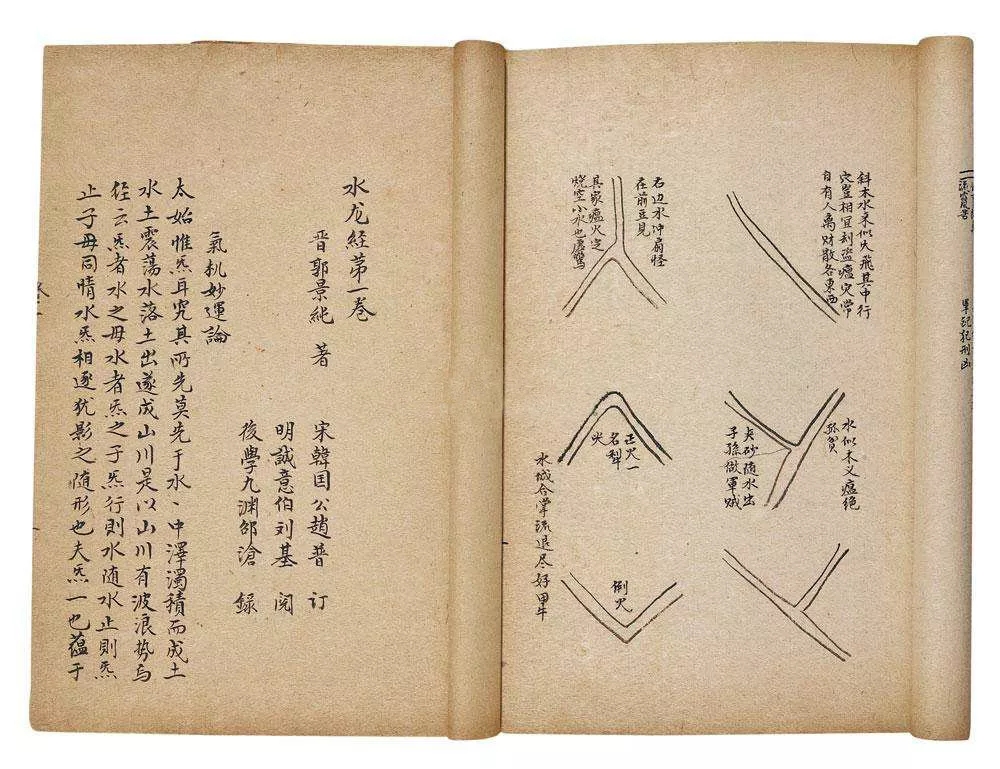 水龙经苐一巻
晋郭景純著
宋韓国公趙普订
明誠意伯刘基阅
後學九渊邵滄錄
氣机妙运論
太始惟炁耳究其所先莫先于水、中澤濁積而成土
水土震荡水落土出遂成山川是以山川有波浪势焉
经云炁者水之母水者炁之子炁行則水随水止則炁
止子母同情水炁相逐犹影之随形也夫炁一也蕴于
軍配犯刑凶
斜木水来似火飛其中行
穴豈相宜刦盗瘟灾常
自有人离财散各東西
右边水冲扇怪
在前豆見
其家瘟火定
燒空小水也虚驚
水似木义瘟絕
孤貧
尖砂随水出
子孫做軍賊
正火一
名犁
尖
水城合掌流退尽好田牛
倒火